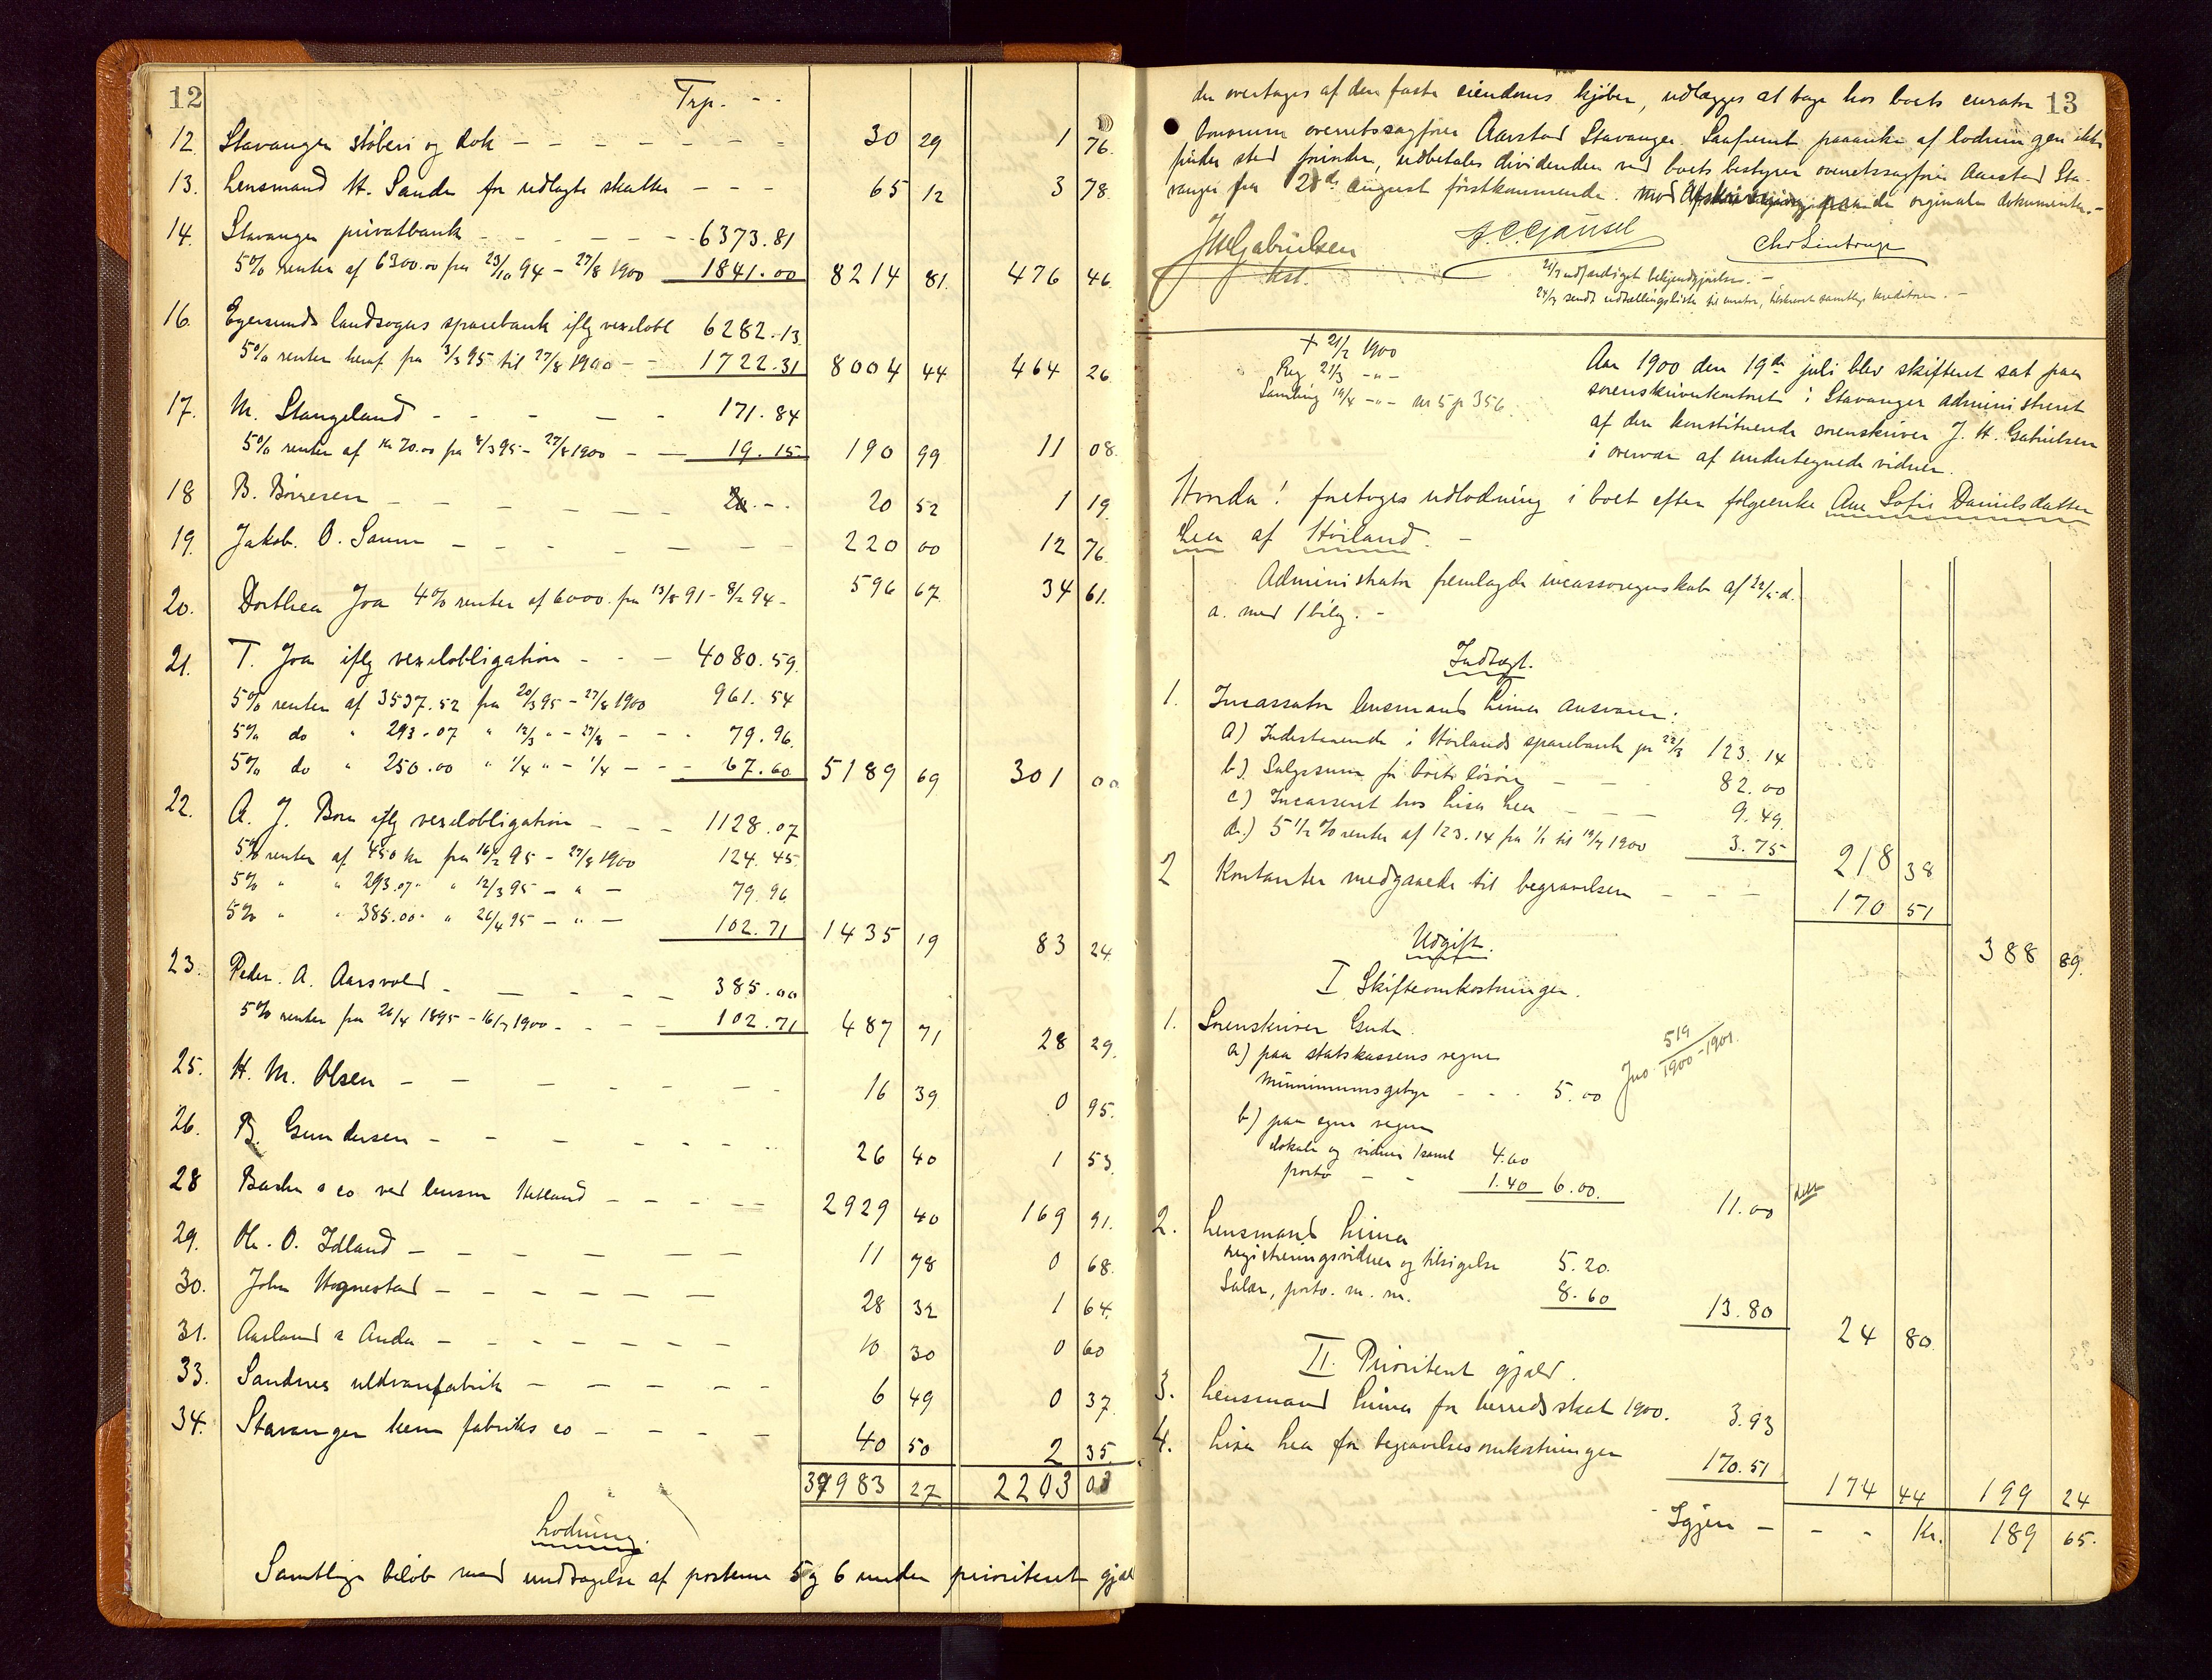 12
Trp. - -
12. Stavanger støberi og dok - - - - - - - 30 29 1 76.
13. Lensmand H. Sande for udlagte skatter - - - 65 12 3 78.
14. Stavanger privatbank - - - - - - 6373.81
5% renter af 6300.00 fra 23/10 94 - 27/8 1900 1841.00 8214 81. 476 46.
16. Egersunds landsogns sparebank iflg vexelobl 6282.13.
5% renter heraf fra 3/3 95 til 27/8 1900 - - 1722.31 8004 44 464 26.
17. M. Stangeland - - - - - 171.84
5% renter af kr 70.00 fra 8/3 95 - 27/8 1900 - - 19.15 190 99 11 08.
18 B. Börresen - - - - - - 20 52 1 19.
19. Jakob. O. Saum - - - - - - - 220 00 12 76.
20. Dorthea Joa 4% renter af 6000. fra 13/8 91 - 8/2 94 - 596 67 34 61.
21. T. Joa iflg vexelobligation - - - 4080.59.
5% renter af 3537.52 fra 20/3 95 - 27/8 1900 961.54
5% do " 293.07 " 12/3 " - 27/8 - - - 79.96.
5% do " 250.00 " 1/4 " - 1/4 - - - 67.60 5189 69 301 00
22. A. J. Bore iflg vexelobligation - - - 1128.07
5% renter af 450 kr fra 16/2 95 - 27/8 1900 124.45
5% " " 293.07 " 12/3 95 - " - 79.96
5% " " 385.00 " 26/4 95 - " - 102.71 1435 19 83 24.
23. Peder. A. Aarsvold - - - - - 385.00
5% renter fra 26/4 1895 - 16/7 1900 - - - - 102.71 487 71 28 29.
25. H. M. Olsen - - - - - - - 16 39 0 95.
26. B. Gundersen - - - - - - - 26 40 1 53.
28 & co ved lensm Hetland - - - - - 2929 40 169 91.
29. Ole. O. Idland - - - - - - - 11 78 0 68.
30. John Hognestad - - - - - - 28 32 1 64.
31. Aasland & Anda - - - - - - - 10 30 0 60
33. Sandnes uldvarefabrik - - - - - 6 49 0 37.
34. Stavanger kem fabriks co - - - - 40 50 2 35.
37983 27 2203 03
Lodning.
Samtlige beløb med undtagelse af posterne 5 og 6 under prioriteret gjæld
13
der overtages af den faste eiendoms kjøber, udlægges at tage hos boets curator
bonorum overretssagfører Aarstad Stavanger. Saafremt paaanke af lodningen ikke
finder sted forinden, udbetales dividenden ved boets bestyrer overretssagfører Aarstad Sta-
vanger fra 28de august førstkommende. mod paa de orginale dokumenter.-
JHGabrielsen
kst.
J.C.Gjausel
Chr Lindtrup
21/7 udfærdiget bekjendtgjørelse. -
24/7 sendt udtællingsliste til curator, tilskrevet samtlige kreditorer. -
+ 21/2 1900
Reg 21/3 - " -
Samling 19/4 - " - nr 5 p 356.
Aar 1900 den 19de juli blev skifteret sat paa
sorenskriverkontoret i Stavanger administreret
af den konstituerede sorenskriver J. H. Gabrielsen
i overvær af undertegnede vidner.
Hvorda! foretoges udlodning i boet efter folgeenke Ane Sofie Danielsdatter
Lea af Hörland. -
Administrator fremlagde incassoregnskab af 22/5 d.
a. med 1 bilag. -
Indtægt.
1. Incassator lensmand Lima ansvarer:
a) Indestaaende i Hörlands sparebank pr 22/3 123.14
b.) Salgssum for boets lösöre - - - 82.00
c) Incasseret hos Lisa Lea - - - 9.49.
d.) 5 1/2 % renter af 123.14 fra 1/1 til 19/7 1900 3.75 218 38
2 Kontanter medgaaede til begravelsen - - - 170 51
388 89.
Udgift.
I Skifteomkostninger.
1. Sorenskriver Gude.
a) paa statskassens regne
minimumsgebyr - - - 5.00
Jno. 519/1900-1901.
b) paa egne regne
lokale og vidner 4.60
porto - - 1.40 6.00. 11.00
2. Lensmand Lima
registreringsvidner og tilsigelse 5.20.
Salær, porto. m. m. 8.60 13.80
24 80.
II. Prioriteret gjæld.
3. Lensmand Lima for herredsskat 1900. 3.93
4. Lisa Lea for begravelsesomkostninger 170.51 174 44 199 24
Igjen - - - Kr. 189 65.